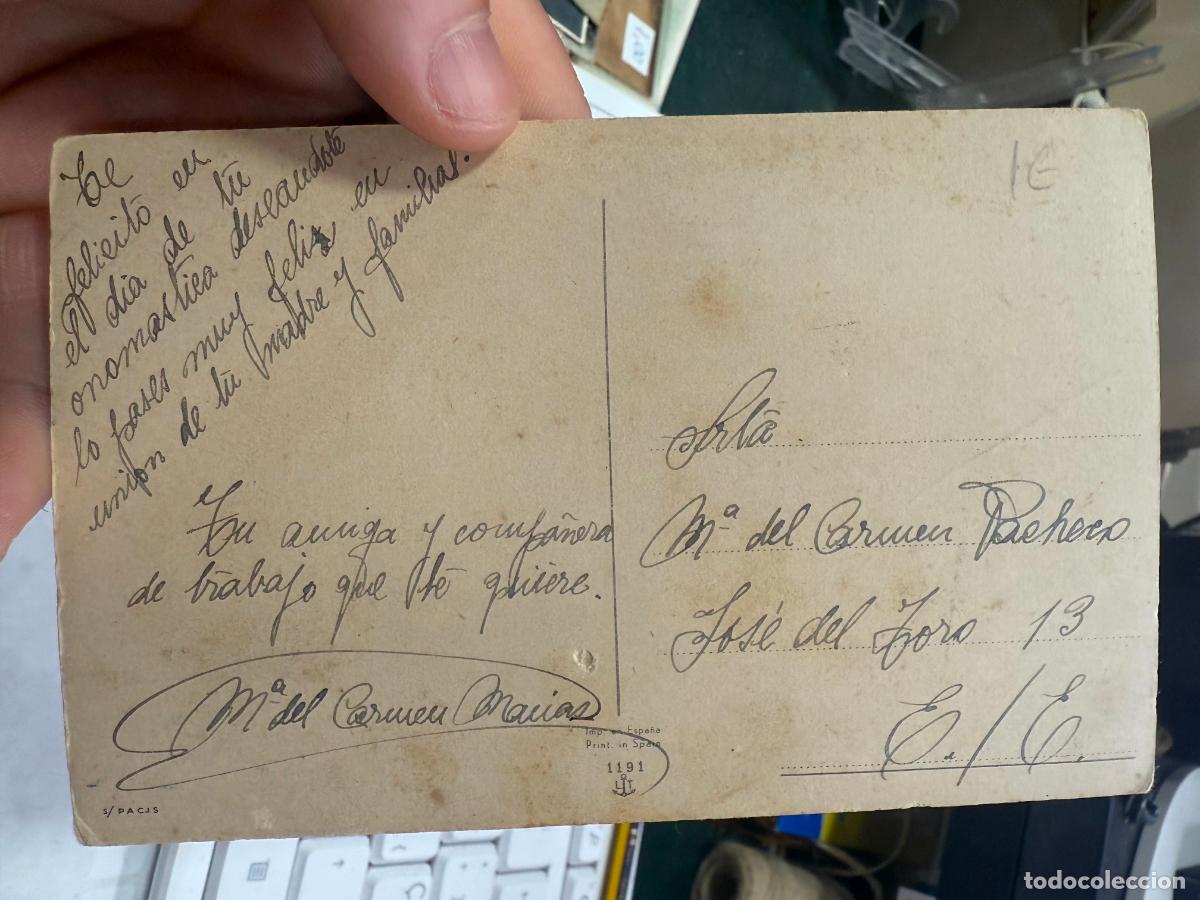 Te
felicito en
el dia de tu
onomastica deseandote
lo pases muy feliz en
unión de tu madre y familias.
Tu amiga y compañera
de trabajo que te quiere.
Mª del Carmen Macias
Srta
Mª del Carmen Pacheco
José del Toro 13
E./E.
1€
Imp. en España
Print. in Spain
1191
S/PACJS
1,00
todocoleccion